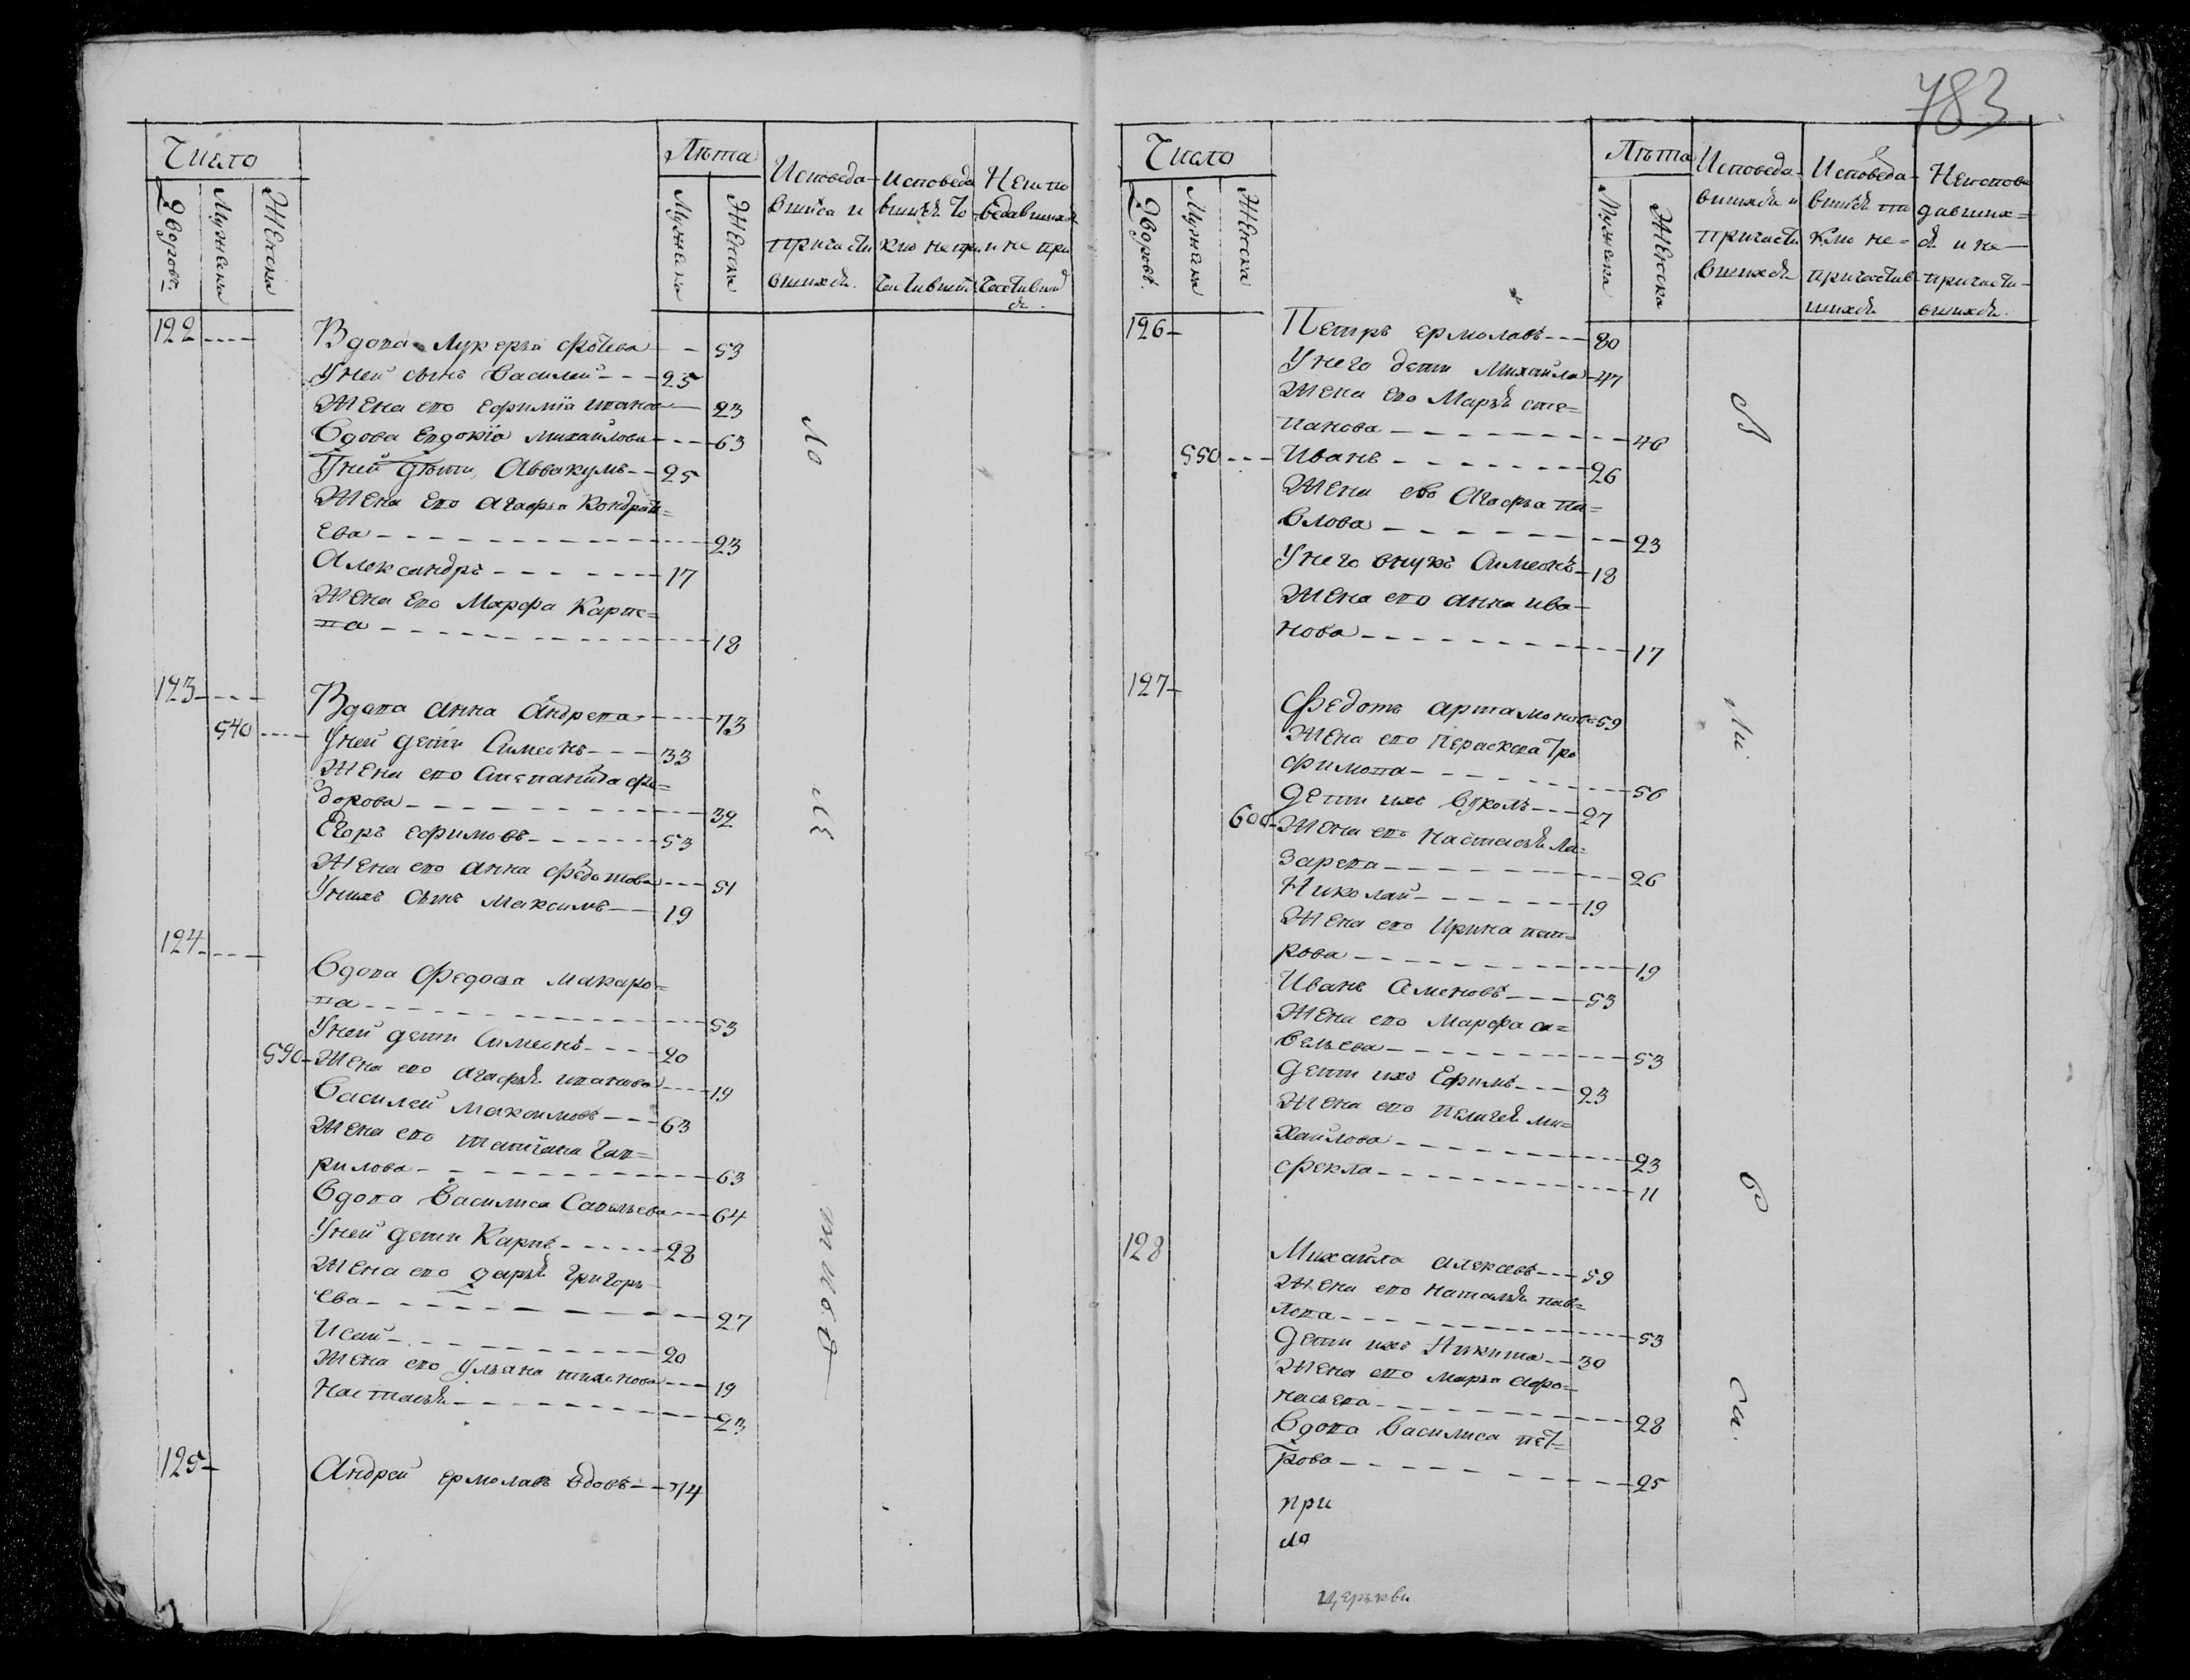 783
Число
Дворовъ.
Мужеска
Женска
Лѣта
Мужеска
Женска
Исповеда-
вшихся и
причасти
вшихся.
Исповеда
вшихся то
кмо не при
частивших
Неиспо
ведавшихся
и не при
частивших
ся.
122
Вдова Лукерья Фотева 53
У ней сынъ Василей 25
Жена его Ефимия 23
Вдова Евдокія Михайлова 63
У ней дѣти, Аввакумъ 25
Жена его Агафья Кондрать=
ева 23
Александръ 17
Жена его Марфа Карпе=
ва 18
123
Вдова Анна Андрева 73
540 У ней дети Симеонъ 33
Жена его Степанида Фе=
дорова 32
Егоръ Ефимовъ 53
Жена его Анна Федотова 51
У нихъ сынъ Максимъ 19
124
Вдова Федосья Макаро=
ва 53
У ней дети Симеонъ 20
590 Жена его Агафья 19
Василей Максимовъ 63
Жена его Татияна Гав=
рилова 63
Вдова Василиса Савельева 64
У ней дети Карпъ 28
Жена его Дарья Григорь
ева 27
Исай 20
Жена его Ульяна Тихонова 19
Настасья 23
125
Андрей Ермолавъ вдовъ 74
Число
Дворовъ.
Мужеска
Женска
Лѣта
Мужеска
Женска
Исповеда-
вшихся и
причасти
вшихся
Исповеда-
вшихся то
кмо не-
причастив-
шихся
Неиспове
давших=
ся и не
причасти-
вшихся.
126
Петръ Ермолавъ 80
У него дети Михайла 47
Жена его Марья Сте=
панова 46
550 Иванъ 26
Жена ево Агафья Па=
влова 23
У него внукъ Симеонъ 18
Жена его Анна Ива-
нова 17
127
Федотъ Артамоновъ 59
Жена его Пераскева Тро
фимова 56
Дети ихъ Вуколъ 27
600 Жена его Настасья Ла=
зарева 26
Николай 19
Жена его Ирина Пет=
рова 19
Иванъ Семеновъ 53
Жена его Марфа Са=
вельева 53
Дети ихъ Ефимъ 23
Жена его Пелагея Ми=
хайлова 23
Фекла 11
128
Михайла Алексевъ 59
Жена его Наталья Пав=
лова 53
Дети ихъ Никита 30
Жена его Марья Афо=
насьева 28
Вдова Василиса Пет=
рова 25
при
ло
церкви